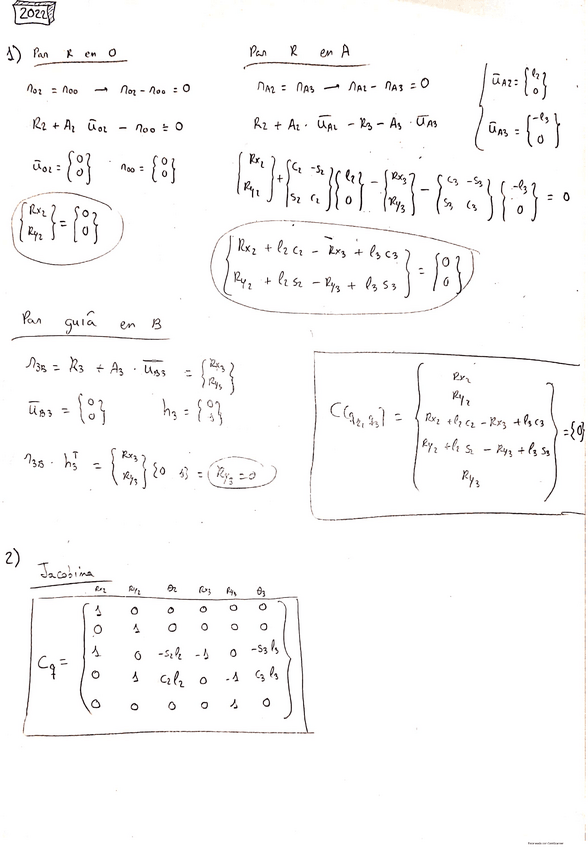 2022
1) Par R en O
r₀₂ = r₀₀ → r₀₂ - r₀₀ = 0
R₂ + A₂ ū₀₂ - r₀₀ = 0
ū₀₂ = {0 0} r₀₀ = {0 0}
{Rx₂ Ry₂} = {0 0}
Par R en A
r_A2 = r_A3 → r_A2 - r_A3 = 0
R₂ + A₂ · ū_A2 - R₃ - A₃ · ū_A3
ū_A2 = {l₂ 0}
ū_A3 = {-l₃ 0}
{Rx₂ Ry₂} + {c₂ -s₂ s₂ c₂} {l₂ 0} - {Rx₃ Ry₃} - {c₃ -s₃ s₃ c₃} {-l₃ 0} = 0
{Rx₂ + l₂ c₂ - Rx₃ + l₃ c₃
Ry₂ + l₂ s₂ - Ry₃ + l₃ s₃} = {0 0}
Par guía en B
r₃B = R₃ + A₃ · ū_B3 = {Rx₃ Ry₃}
ū_B3 = {0 0} h₃ = {0 1}
r₃B · h₃ᵀ = {Rx₃ Ry₃} {0 1} = Ry₃ = 0
C(q₂, q₃) = {
Rx₂
Ry₂
Rx₂ + l₂ c₂ - Rx₃ + l₃ c₃
Ry₂ + l₂ s₂ - Ry₃ + l₃ s₃
Ry₃
} = {0}
2)
Jacobina
Rx₂ Ry₂ θ₂ Rx₃ Ry₃ θ₃
Cq =
1 0 0 0 0 0
0 1 0 0 0 0
1 0 -s₂l₂ -1 0 -s₃l₃
0 1 c₂l₂ 0 -1 c₃l₃
0 0 0 0 1 0